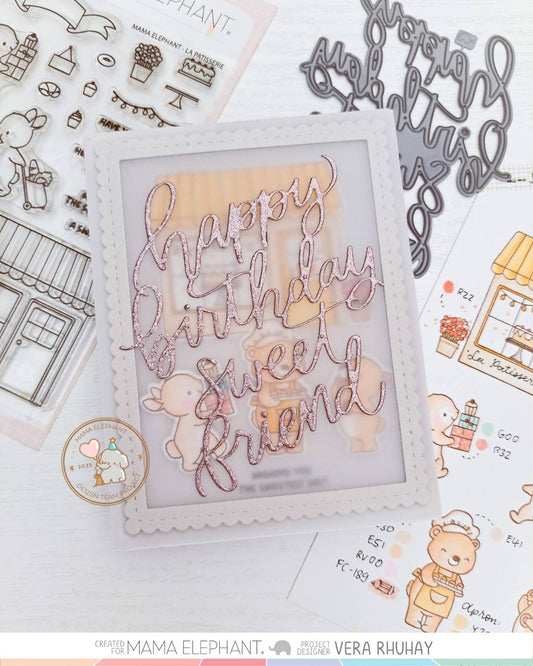 MAMA ELEPHANT.
MAMA ELEPHANT - LA PATISSERIE
happy
birthday
sweet
friend
THE SWEETEST DAY!
R22
La Patisserie
G00
R32
E51
RV00
FC-189
E41
apron:
MAMA ELEPHANT
2025
DESIGN TEAM PROJECT
CREATED FOR MAMA ELEPHANT. PROJECT DESIGNER VERA RHUHAY